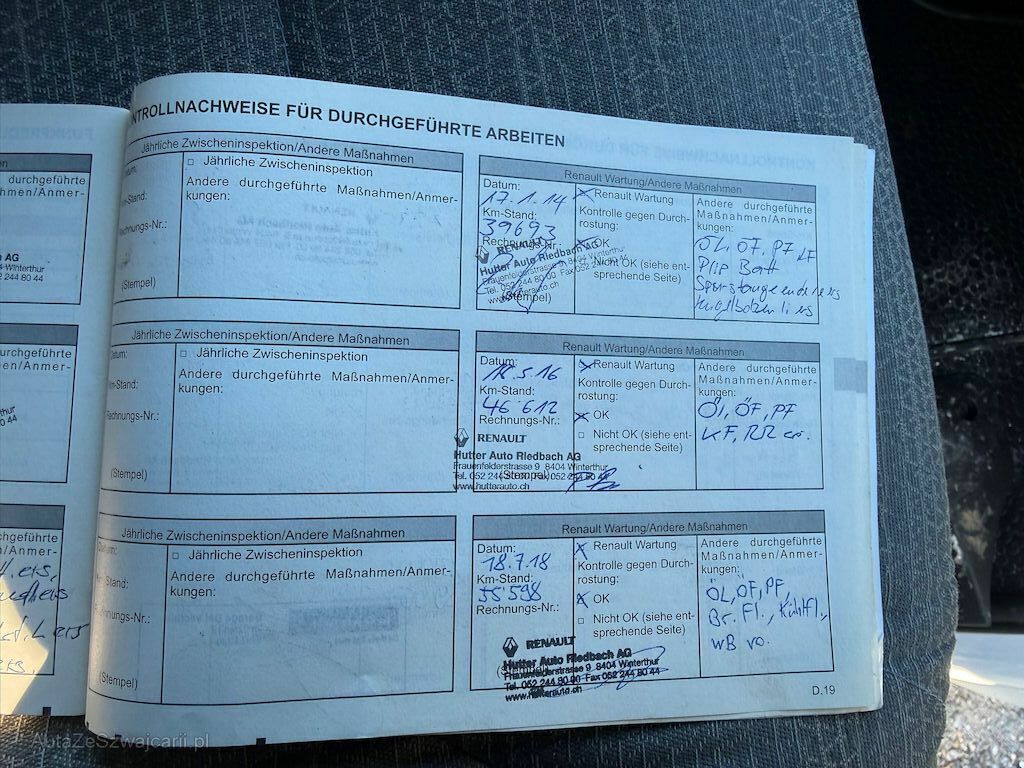 NTROLLNACHWEISE FÜR DURCHGEFÜHRTE ARBEITEN
Jährliche Zwischeninspektion/Andere Maßnahmen
□ Jährliche Zwischeninspektion
Andere durchgeführte Maßnahmen/Anmer-
kungen:
-Stand:
hnungs-Nr.:
(Stempel)
Renault Wartung/Andere Maßnahmen
Datum:
17.1.14
Km-Stand:
39693
Rechnungs-Nr.
RENAULT
Hutter Auto Riedbach AG
Frauenfelderstrasse 9 8404 Winterthur
Tel. 052 244 80 00 Fax 052 244 80 44
www.hutterauto.ch
(Stempel)
Renault Wartung
Kontrolle gegen Durch-
rostung:
OK
Nicht OK (siehe ent-
sprechende Seite)
Andere durchgeführte
Maßnahmen/Anmer-
kungen:
ÖL, ÖF, PF LF
Plip Batt
Jährliche Zwischeninspektion/Andere Maßnahmen
Datum:
□ Jährliche Zwischeninspektion
Andere durchgeführte Maßnahmen/Anmer-
kungen:
Km-Stand:
Rechnungs-Nr.:
(Stempel)
Renault Wartung/Andere Maßnahmen
Datum:
18.5.16
Km-Stand:
46 612
Rechnungs-Nr.:
RENAULT
Hutter Auto Riedbach AG
Frauenfelderstrasse 9 8404 Winterthur
Tel. 052 244 80 00 Fax 052 244 80 44
www.hutterauto.ch
(Stempel)
Renault Wartung
Kontrolle gegen Durch-
rostung:
OK
□ Nicht OK (siehe ent-
sprechende Seite)
Andere durchgeführte
Maßnahmen/Anmer-
kungen:
Öl, ÖF, PF
Jährliche Zwischeninspektion/Andere Maßnahmen
Datum:
□ Jährliche Zwischeninspektion
Andere durchgeführte Maßnahmen/Anmer-
kungen:
Km-Stand:
hnungs-Nr.:
(Stempel)
Renault Wartung/Andere Maßnahmen
Datum:
18.7.18
Km-Stand:
55 598
Rechnungs-Nr.:
RENAULT
Hutter Auto Riedbach AG
Frauenfelderstrasse 9 8404 Winterthur
Tel. 052 244 80 00 Fax 052 244 80 44
www.hutterauto.ch
Renault Wartung
Kontrolle gegen Durch-
rostung:
OK
□ Nicht OK (siehe ent-
sprechende Seite)
Andere durchgeführte
Maßnahmen/Anmer-
kungen:
ÖL, ÖF, PF,
Br. Fl., Kühlfl.,
WB vo.
D.19
AutaZeSzwajcarii.pl